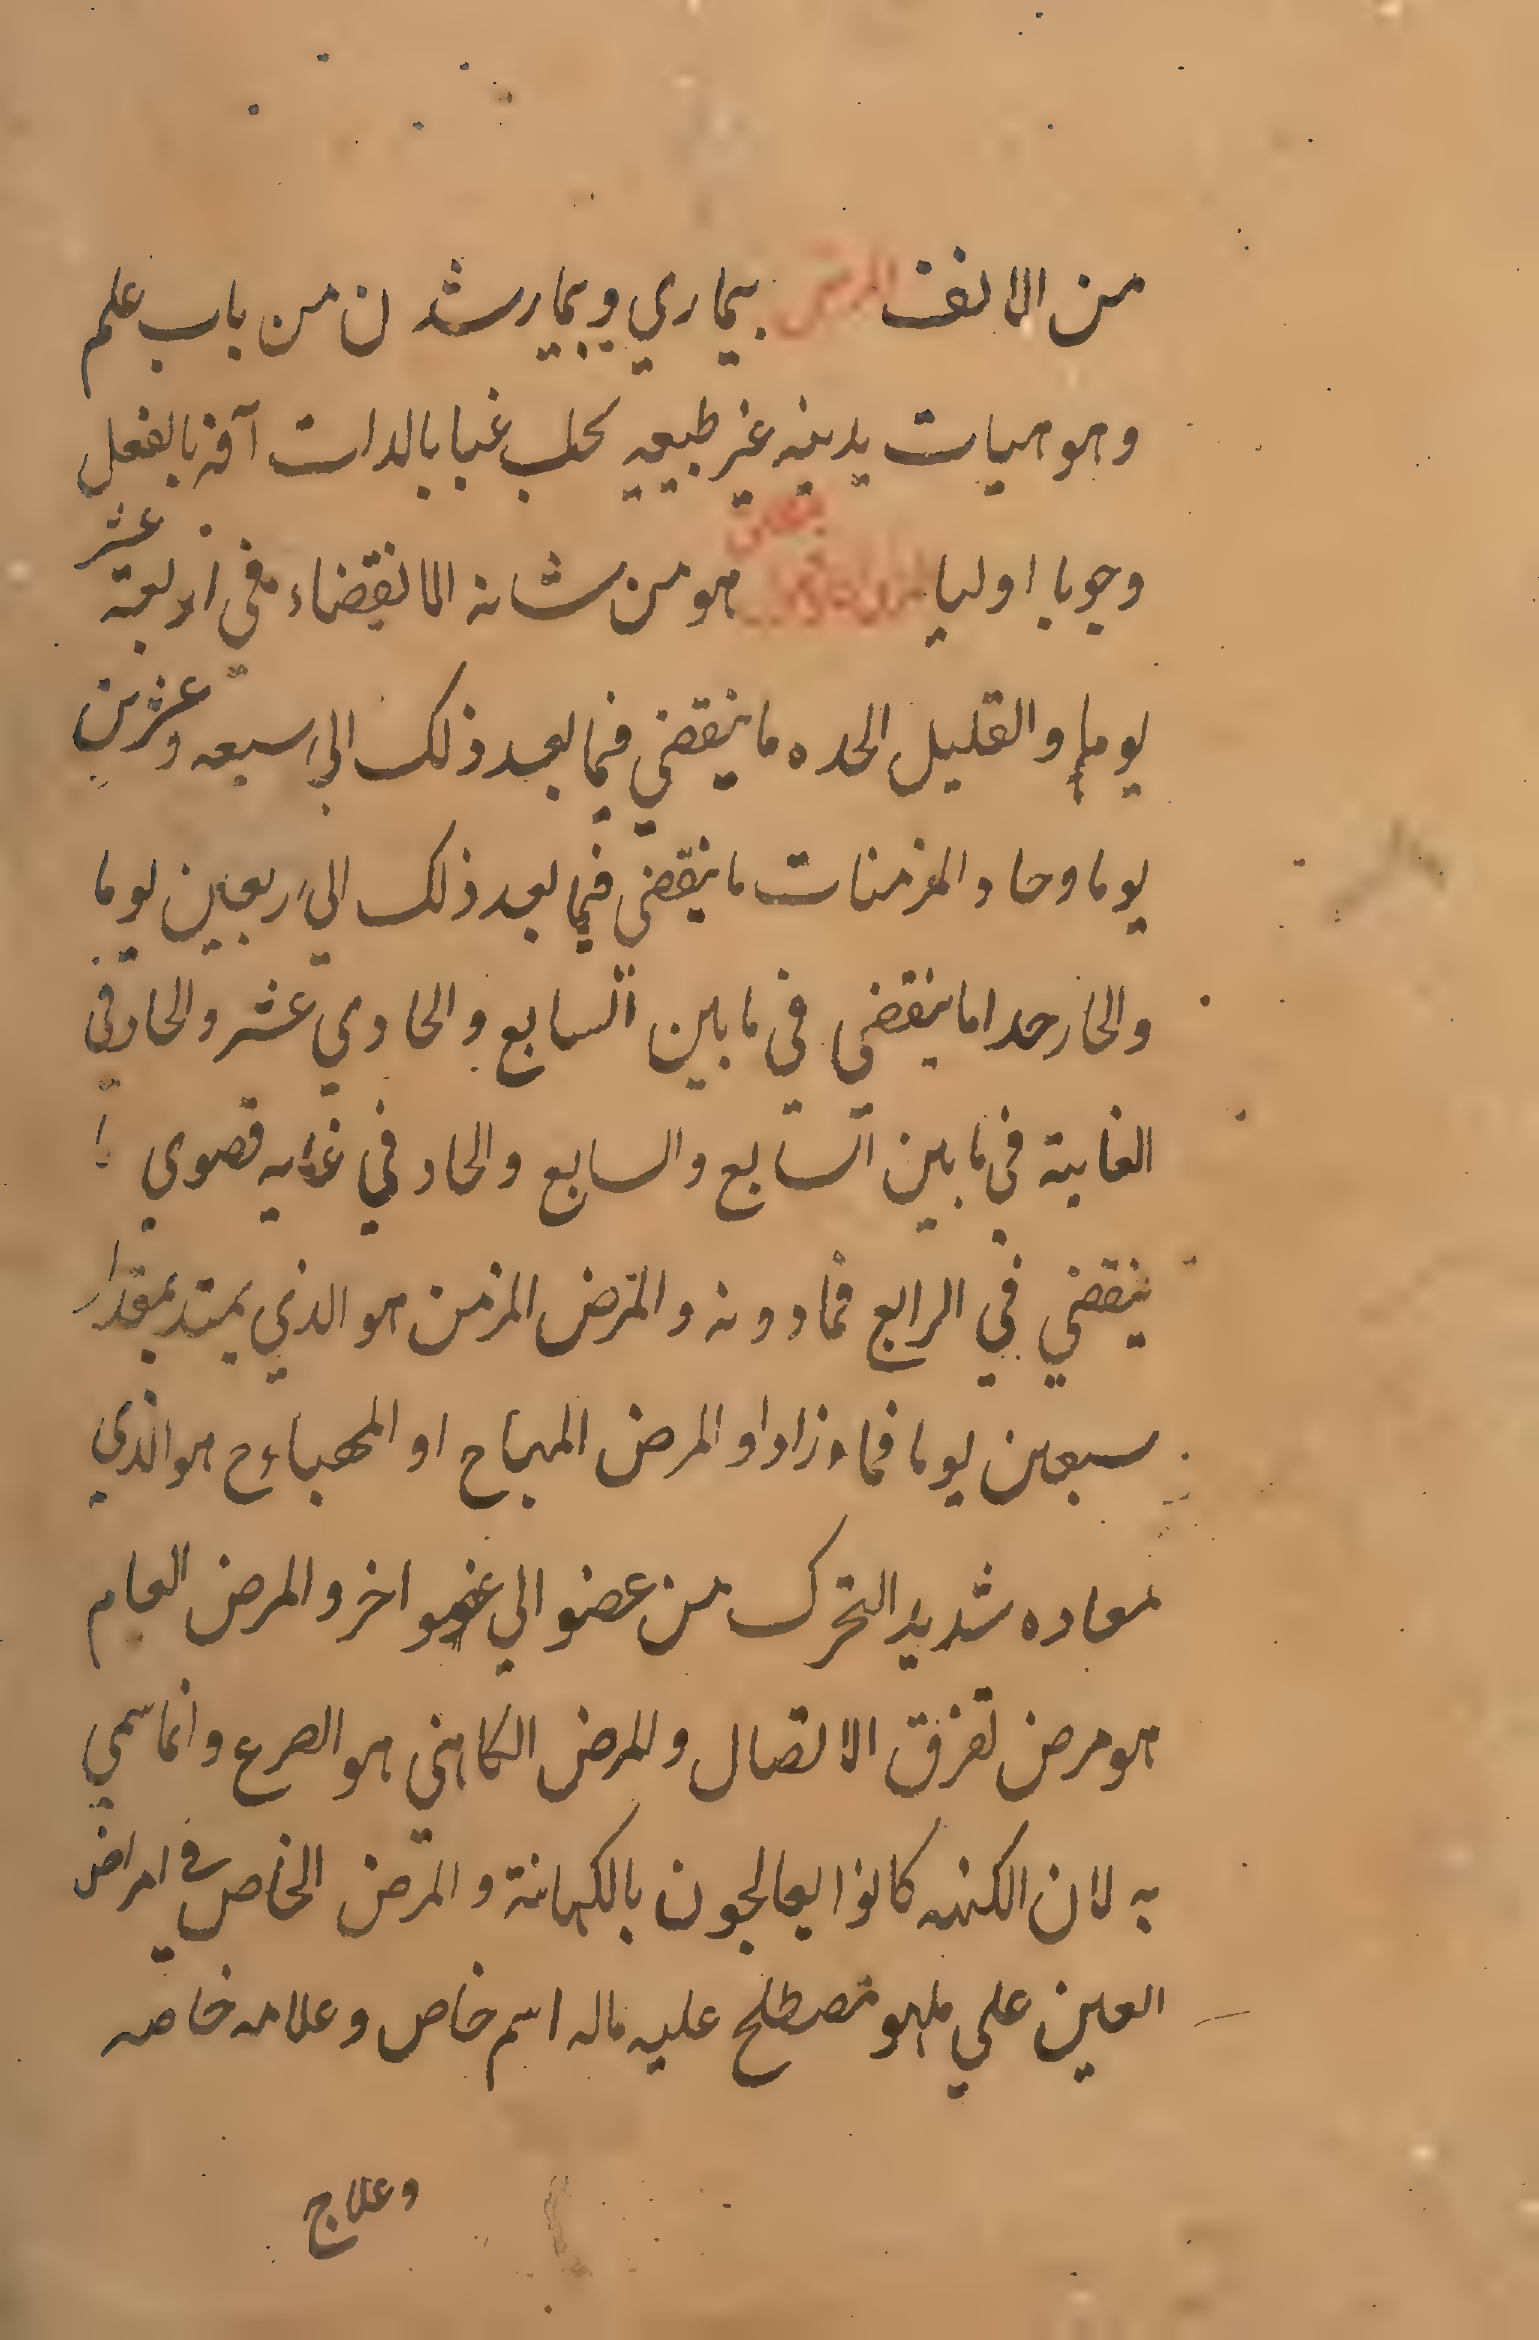 من الانف المرض بيماري وبيمار شدن من باب علم
وهو هيات بدينه غير طبيعيه يجب عنها بالدات آفة بالفعل
وجوبا اوليا هو من شانه الانقضاء في اربعة عشر
يوما والقليل الحده ما ينقضي فيما بعد ذلك الي سبعه وعشرين
يوما وحاد المزمنات ما ينقضي فيما بعد ذلك الي اربعين يوما
والحار حدا ما ينقضي في ما بين السابع والحادي عشر والحاد في
الغاية في ما بين السابع والحاد في غايه قصوي ما
ينقضي في الرابع فما دونه والمرض المزمن هو الذي يمتد بمقدار
سبعين يوما فما زاد او المرض المهياج او المهياءج هو الذي
لمعاده شديد التحرك من عضو الي عضو اخر والمرض العام
هو مرض تفرق الاتصال والمرض الكاهني هو الصرع وانما سمي
به لان الكنهه كانوا يعالجون بالكهانة والمرض الخاص في امراض
العين علي ما هو مصطلح عليه ماله اسم خاص وعلامه خاصه
وعلاج